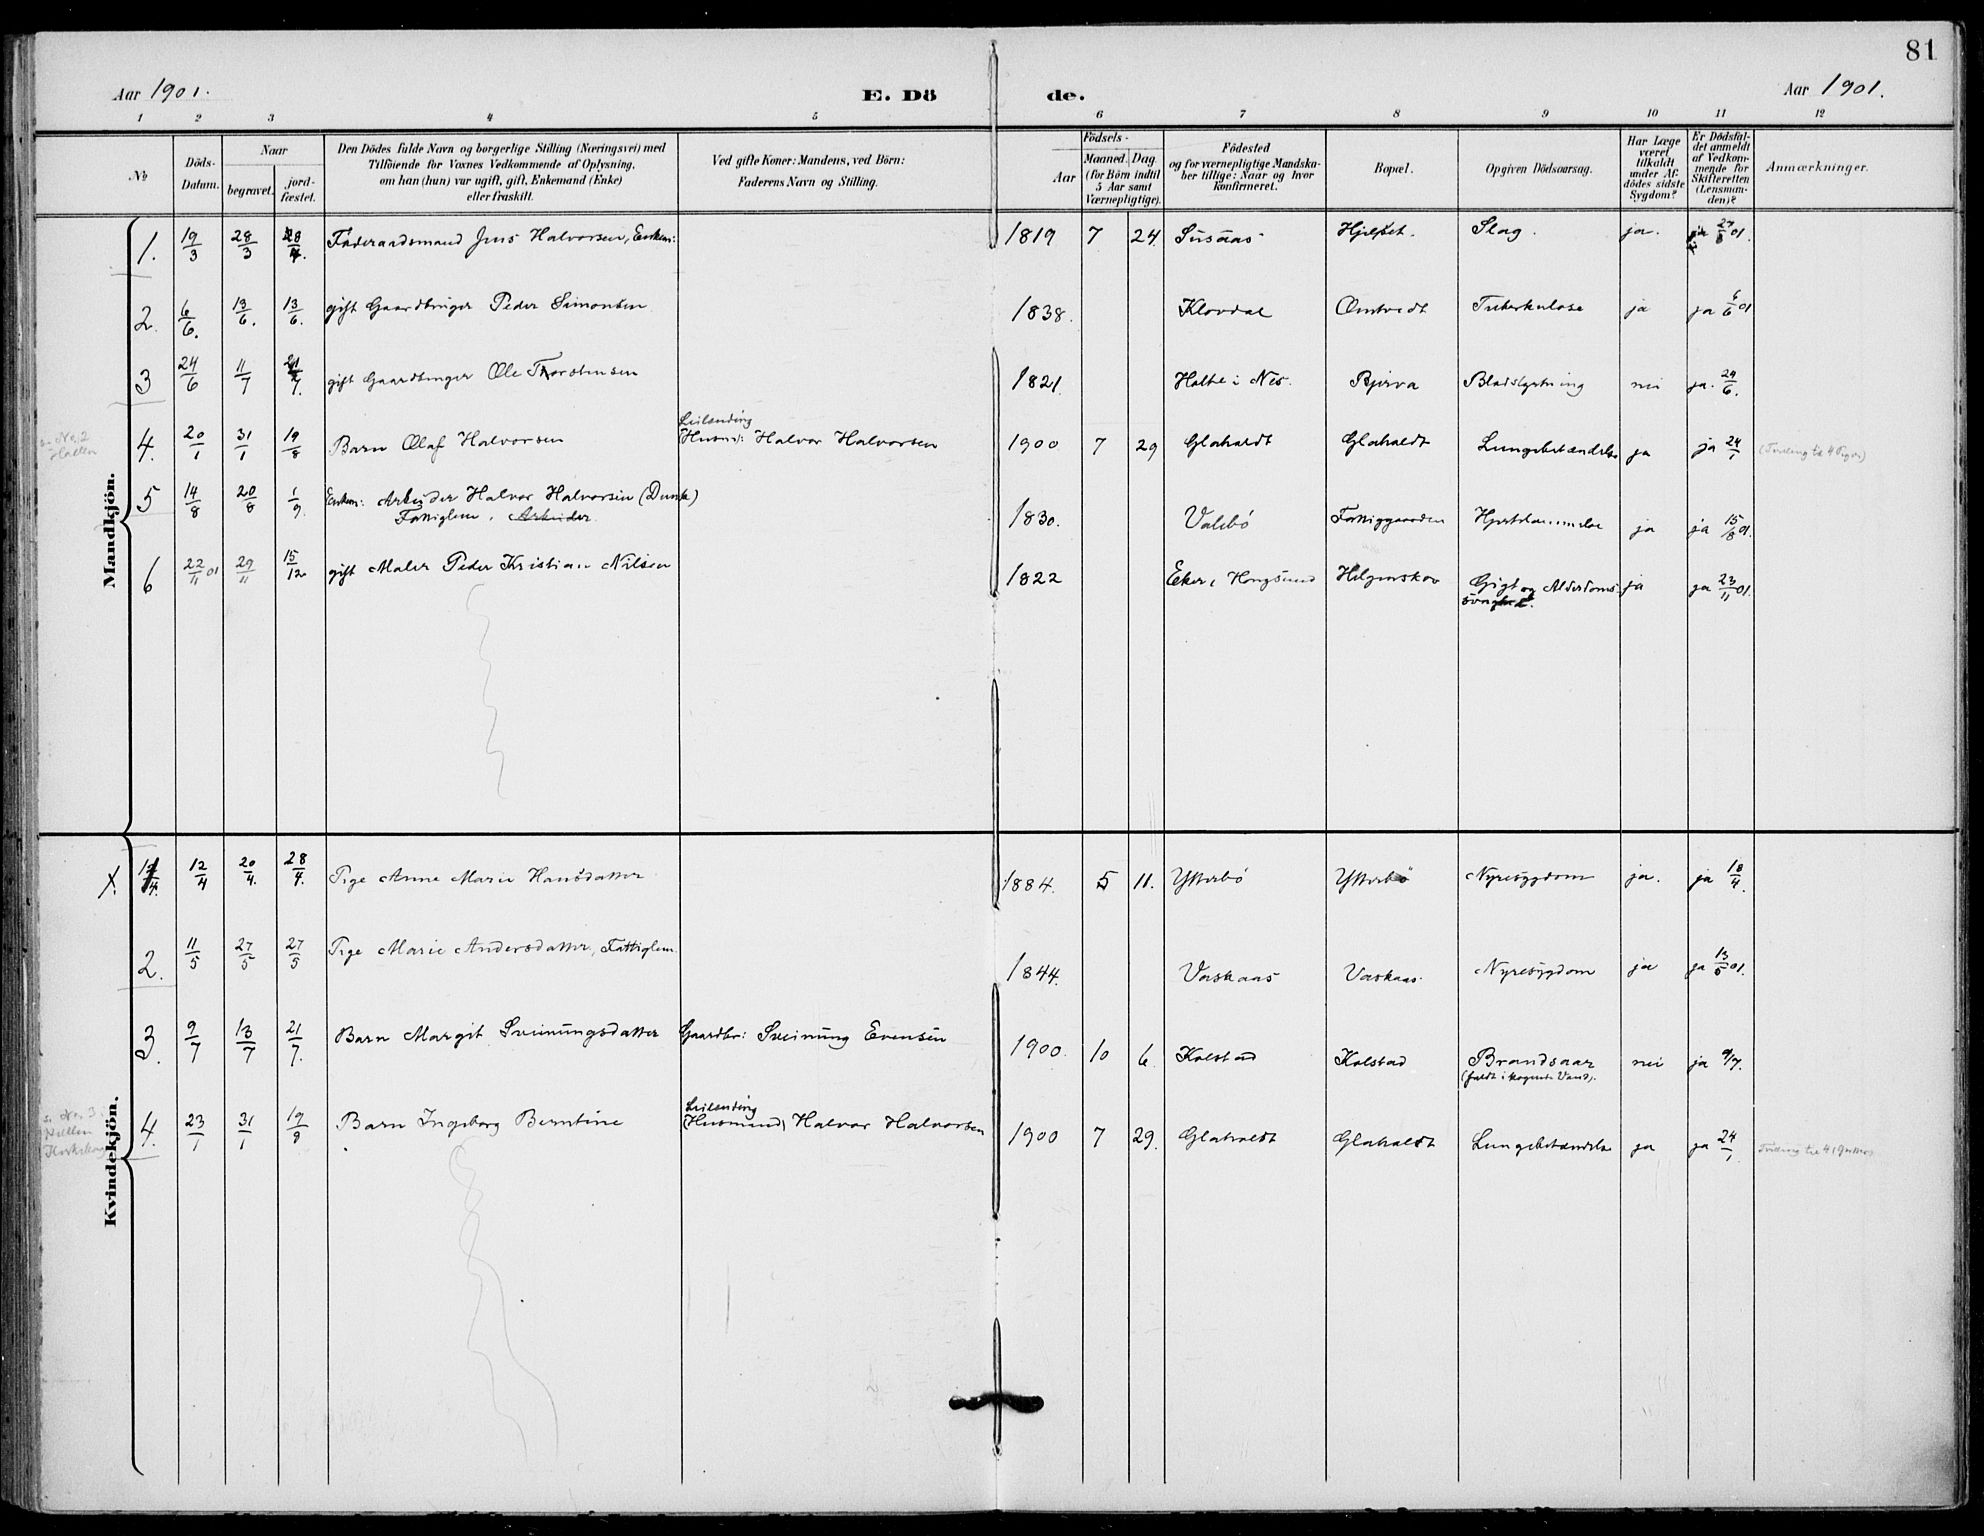 81
Aar 1901.
E. Dö de.
Aar 1901.
1 2 3 4 5 6 7 8 9 10 11 12
No
Döds-
Datum.
Naar
begravet.
jord-
fæstet.
Den Dödes fulde Navn og borgerlige Stilling (Næringsvei) med
Tilföiende for Voxnes Vedkommende af Oplysning,
om han (hun) var ugift, gift, Enkemand (Enke)
eller fraskilt.
Ved gifte Koner: Mandens, ved Börn:
Faderens Navn og Stilling.
Födsels-
Aar
Maaned. Dag.
(for Börn indtil
5 Aar samt
Værnepligtige).
Födested
og for værnepligtige Mandska-
ber tillige: Naar og hvor
konfirmeret.
Bopæl.
Opgiven Dödsaarsag.
Har Læge
været
tilkaldt
under Af-
dödes sidste
Sygdom?
Er Dödsfal-
det anmeldt
af Vedkom-
mende for
Skifteretten
(Lensman-
den)?
Anmærkninger.
Mandkjön.
1. 19/3 28/3 28/4 Föderaadsmand Jens Halvorsen, Enkem: 1819 7 24 Susaas Hjelset. Slag. ja. ja 01.
2. 6/6. 13/6. 13/6. gift Gaardbruger Peder Simonsen 1838. Klovdal Omtvedt Tuberkulose ja ja 6/6 01
3 24/6 11/7 21/7. gift Gaardbruger Ole Thorstensen 1821. Holte i Nes. Bjerva Blodstyrtning nei ja. 24/6.
4. 20/1 31/1 19/8 Barn Olaf Halvorsen Leilænding (Husm): Halvor Halvorsen 1900 7 29 Glahaldt Glahaldt Lungebetændelse ja ja 24/1 (Tvilling til 4 Piger)
5 14/8 20/8 1/9. Enkem: Arbeider Halvor Halvorsen (Dunk)
Fattiglem, Arbeider. 1830. Valebö Fattiggaarden Hjertelammelse ja ja 15/8 01.
6 22/11 01 29/11 15/12 gift Maler Peder Kristian Nilsen 1822 Eker, Hougsund Helgenskov Gigt og Alderdoms-
svaghed. ja ja 23/11 01.
Kvindekjön.
12/4 20/4. 28/4. Pige Anne Marie Hansdatter 1884. 5 11. Ytterbö Ytterbö Nyresygdom ja. ja 18/4.
2. 11/5 27/5 27/5 Pige Marie Andersdatter, Fattiglem. 1844. Vaskaas Vaskaas. Nyresygdom ja ja 13/5 01.
3. 9/7 13/7 21/7. Barn Margit Sveinungsdatter Gaardbr: Sveinung Evensen 1900. 10 6. Kolstad Kolstad Brandsaar
(faldt i kogende Vand). nei ja 9/7.
4. 23/1 31/1 19/8 Barn Ingeborg Berntine Leilænding (Husmand) Halvor Halvorsen 1900 7 29. Glahaldt Glahaldt Lungebetændelse ja ja 24/1. Tvilling til 4